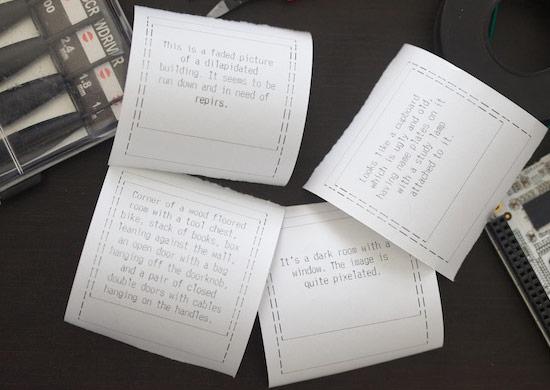 CR WDRIVER
00
2.4
1.8
1.
This is a faded picture
of a dilapidated
building. It seems to be
run down and in need of
repirs.
Looks like a cupboard
which is ugly and old,
having name plates on it
with a study lamp
attached to it.
Corner of a wood floored
room with a tool chest,
bike, stack of books, box
leaning against the wall,
an open door with a bag
hanging off the doorknob,
and a pair of closed
double doors with cables
hanging on the handles.
It's a dark room with a
window. The image is
quite pixelated.